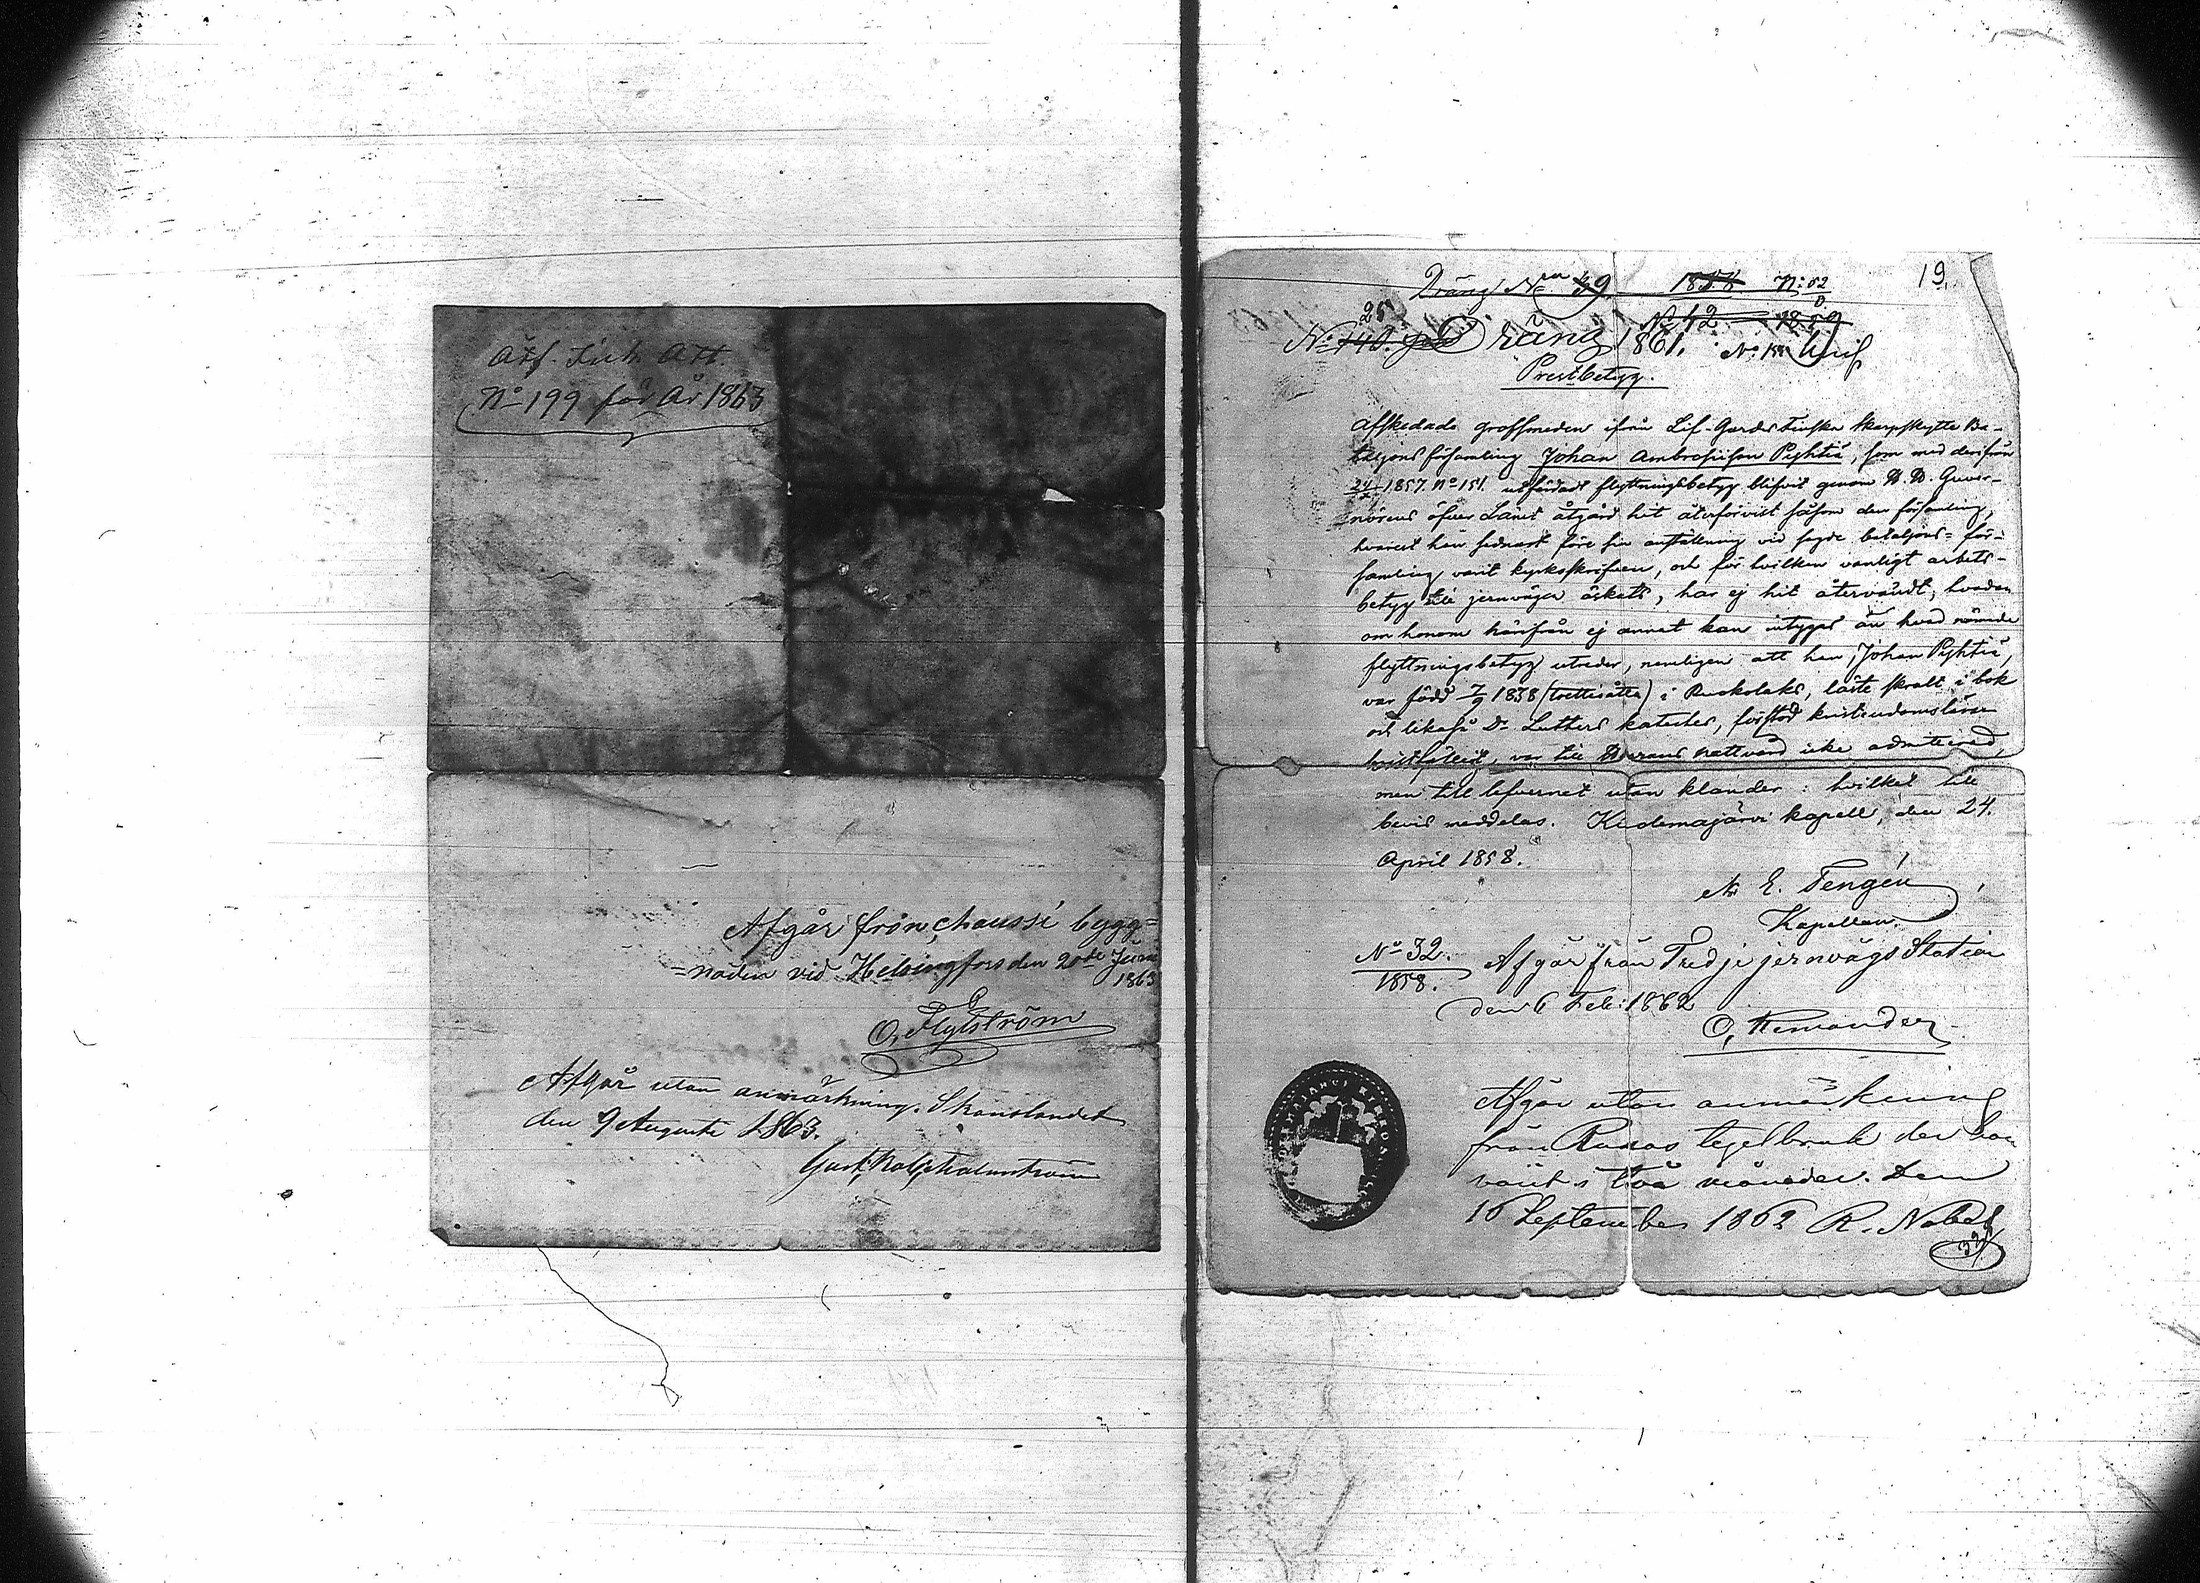 Att. Sub. Att.
No 199 för År 1863
Afgår från chaussé bygg=
=naden vid Helsingfors den 20de Juni
1863
O, Flygström
Afgår utan anmärkning. Skanslandet
den 9 Augusti 1863.
Gust. Malmström
19
Dräng No 39 1858 No 52
25 No 42 1859
No 140 Dräng 1861. No
Prestbetyg.
Afskedade grofsmeden ifrån Lif-Gardes Finska Skarpskytte Ba-
taljons församling Johan Ambrosiison Pyhtiä, som med derifrån
24 1857 No 151 utfärdadt flyttningsbetyg blifvit genom H. H. Guver-
nörens öfver Länet åtgärd hit återförvist såsom den församling,
hvarest han sednast före sin anställning vid sagde bataljons= för-
samling varit kyrkoskrifven, och för hvilken vanligt arbets-
betyg till jernväga äskats, har ej hit återvändt, hvadan
om honom härifrån ej annat kan intygas än hvad nämnde
flyttningsbetyg utreder, nemligen att han, Johan Pyhtiä,
var född 7/9 1838 (trettiåtta) i Ruokolaks, läste skralt i bok
och likaså Dr Luthers kateches, förstod kristendomsläran
bristfälligt, var till Herrans nattvard icke admitterad,
men till lefvernet utan klander: hvilket till
bevis meddelas. Kidemajärvi kapell, den 24.
April 1858.
E. Tengén
Kapellan.
No 32. Afgår från Tredje jernvägs Station
1858.
den 6 Feb: 1862
O,
Afgår utan anmärkning
från tegelbruk der han
varit i två månader. Den
16 September 1862 R.